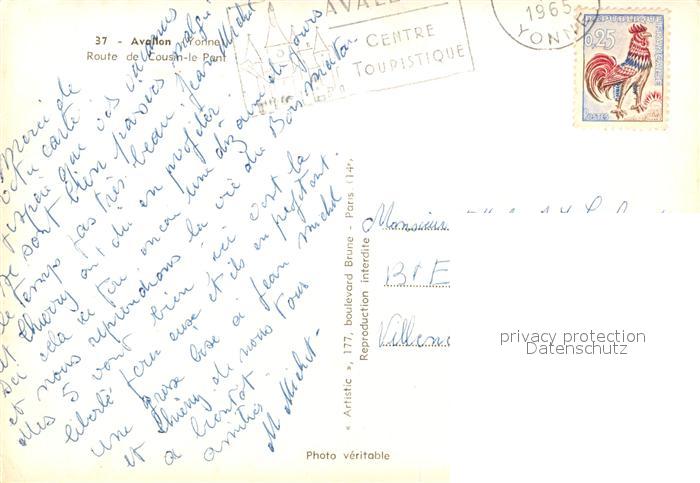 37 - Avallon (Yonne)
Route de Cousin-le-Pont
AVALL
CENTRE
TOURISTIQUE
1965
YONNE
REPUBLIQUE FRANCAISE
0,25
POSTES
Merci de
votre carte.
J'espère que vos vacances
se sont bien passées malgré
le temps pas très beau, Jean Michel
et Thierry ont dû en profiter.
Ici cela se tire, encore une dizaine de jours
et nous reprendrons la vie du Bonimatou.
Mes 5 vont bien, ici c'est la
liberté pour eux et ils en profitent.
Une grosse bise à Jean Michel
et Thierry de nous tous
à bientôt
amitiés
M. Michet
« Artistic », 177, boulevard Brune - Paris (14e)
Reproduction interdite
Monsieur
Bt E
Villen
privacy protection
Datenschutz
Photo véritable